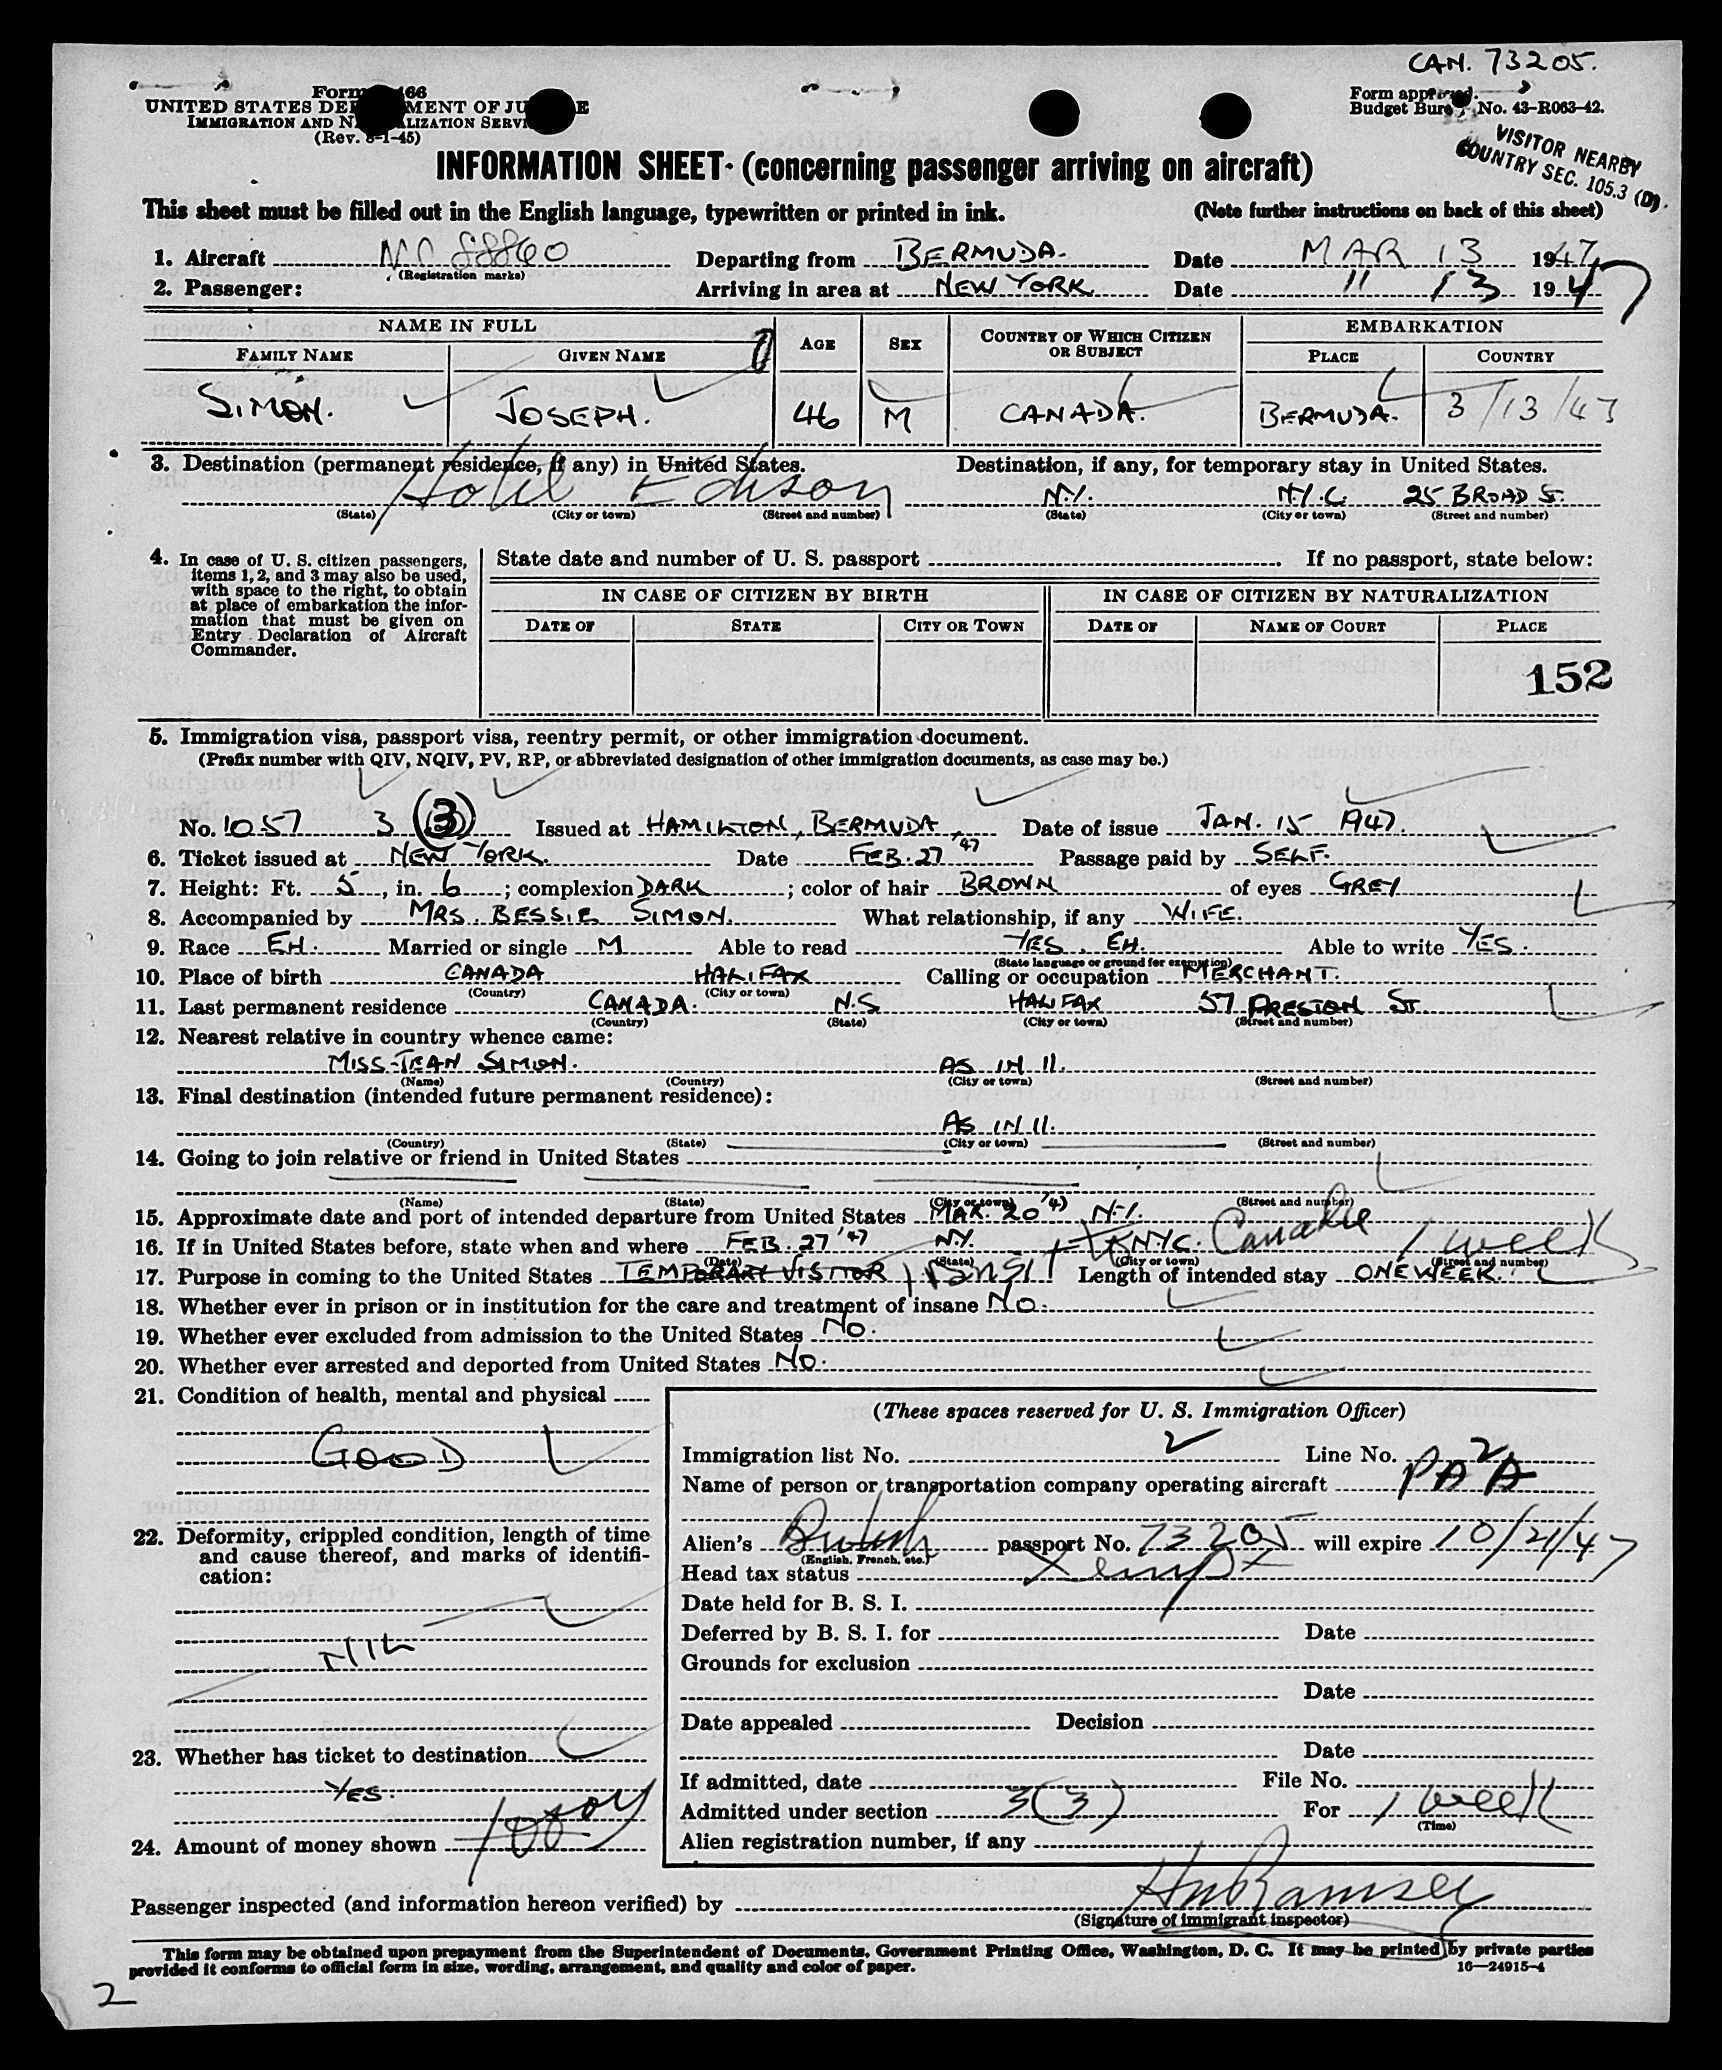 CAN. 73205.
Form 466
Form approved.
UNITED STATES DEPARTMENT OF JUSTICE
Budget Bureau No. 43-R063-42.
IMMIGRATION AND NATURALIZATION SERVICE
(Rev. 8-1-45)
VISITOR NEARBY
COUNTRY SEC. 105.3 (D).
INFORMATION SHEET (concerning passenger arriving on aircraft)
This sheet must be filled out in the English language, typewritten or printed in ink. (Note further instructions on back of this sheet)
1. Aircraft NC 88860 Departing from BERMUDA. Date MAR 13 1947
(Registration marks)
2. Passenger: Arriving in area at NEW YORK Date " 13 1947
NAME IN FULL AGE SEX COUNTRY OF WHICH CITIZEN OR SUBJECT EMBARKATION
FAMILY NAME GIVEN NAME PLACE COUNTRY
SIMON. JOSEPH. 46 M CANADA. BERMUDA. 3/13/47
3. Destination (permanent residence, if any) in United States. Destination, if any, for temporary stay in United States.
Hotel Edison N.Y. N.Y.C. 25 BROAD ST.
(State) (City or town) (Street and number) (State) (City or town) (Street and number)
4. In case of U. S. citizen passengers, items 1, 2, and 3 may also be used, with space to the right, to obtain at place of embarkation the information that must be given on Entry Declaration of Aircraft Commander.
State date and number of U. S. passport If no passport, state below:
IN CASE OF CITIZEN BY BIRTH IN CASE OF CITIZEN BY NATURALIZATION
DATE OF STATE CITY OR TOWN DATE OF NAME OF COURT PLACE
152
5. Immigration visa, passport visa, reentry permit, or other immigration document.
(Prefix number with QIV, NQIV, PV, RP, or abbreviated designation of other immigration documents, as case may be.)
No. 1057 3 (3) Issued at HAMILTON, BERMUDA, Date of issue JAN. 15 1947.
6. Ticket issued at NEW YORK. Date FEB. 27 '47 Passage paid by SELF.
7. Height: Ft. 5, in. 6; complexion DARK; color of hair BROWN of eyes GREY
8. Accompanied by MRS. BESSIE SIMON. What relationship, if any WIFE.
9. Race EH. Married or single M Able to read YES, EH. Able to write YES.
(State language or ground for exemption)
10. Place of birth CANADA HALIFAX Calling or occupation MERCHANT.
(Country) (City or town)
11. Last permanent residence CANADA. N.S HALIFAX 57 PRESTON ST.
(Country) (State) (City or town) (Street and number)
12. Nearest relative in country whence came:
MISS JEAN SIMON. AS IN 11.
(Name) (Country) (City or town) (Street and number)
13. Final destination (intended future permanent residence):
AS IN 11.
(Country) (State) (City or town) (Street and number)
14. Going to join relative or friend in United States
(Name) (State) (City or town) (Street and number)
15. Approximate date and port of intended departure from United States MAR. 20 '47 N.Y.
16. If in United States before, state when and where FEB. 27 '47 N.Y. N.Y.C.
(Date) (State) (City or town) (Street and number)
17. Purpose in coming to the United States TEMPORARY VISITOR transit to Canada Length of intended stay ONE WEEK. 1 week
18. Whether ever in prison or in institution for the care and treatment of insane NO.
19. Whether ever excluded from admission to the United States NO.
20. Whether ever arrested and deported from United States NO.
21. Condition of health, mental and physical
GOOD
22. Deformity, crippled condition, length of time and cause thereof, and marks of identification:
NIL
23. Whether has ticket to destination
YES.
24. Amount of money shown 100
(These spaces reserved for U. S. Immigration Officer)
Immigration list No. 2 Line No. 2
Name of person or transportation company operating aircraft PAA
Alien's British passport No. 73205 will expire 10/21/47
(English, French, etc.)
Head tax status exempt
Date held for B. S. I.
Deferred by B. S. I. for Date
Grounds for exclusion
Date
Date appealed Decision
Date
If admitted, date File No.
Admitted under section 3(3) For 1 week
(Time)
Alien registration number, if any
Passenger inspected (and information hereon verified) by Ramsey
(Signature of immigrant inspector)
This form may be obtained upon prepayment from the Superintendent of Documents, Government Printing Office, Washington, D. C. It may be printed by private parties
provided it conforms to official form in size, wording, arrangement, and quality and color of paper.
16—24915-4
2